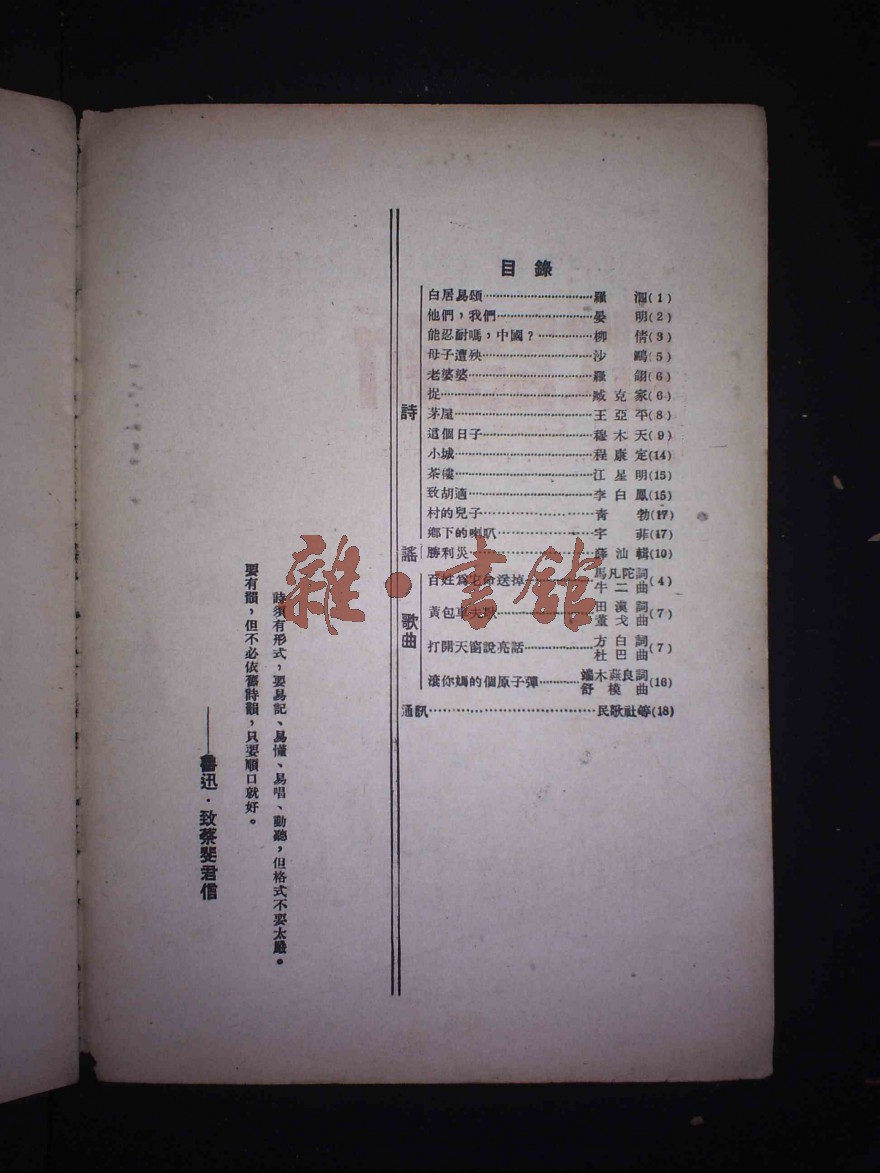 目錄
詩
白居易頌……羅泅(1)
他們，我們……晏明(2)
能忍耐嗎，中國？……柳倩(3)
母子遭殃……沙鷗(5)
老婆婆……羅翎(6)
捉……臧克家(6)
茅屋……王亞平(8)
這個日子……穆木天(9)
小城……程康定(14)
茶僂……江星明(15)
致胡適……李白鳳(15)
村的兒子……青勃(17)
鄉下的喇叭……字菲(17)
謠
勝利災……薛汕輯(10)
歌曲
百姓爲它命送掉……馬凡陀詞 牛二曲(4)
黃包車夫歎……田漢詞 董戈曲(7)
打開天窗說亮話……方白詞 杜巴曲(7)
滾你媽的個原子彈……端木蕻良詞 舒模曲(16)
通訊……民歌社等(18)
詩須有形式，要易記、易懂、易唱、動聽，但格式不要太嚴。
要有韻，但不必依舊詩韻，只要順口就好。
——魯迅·致蔡斐君信
雜·書館